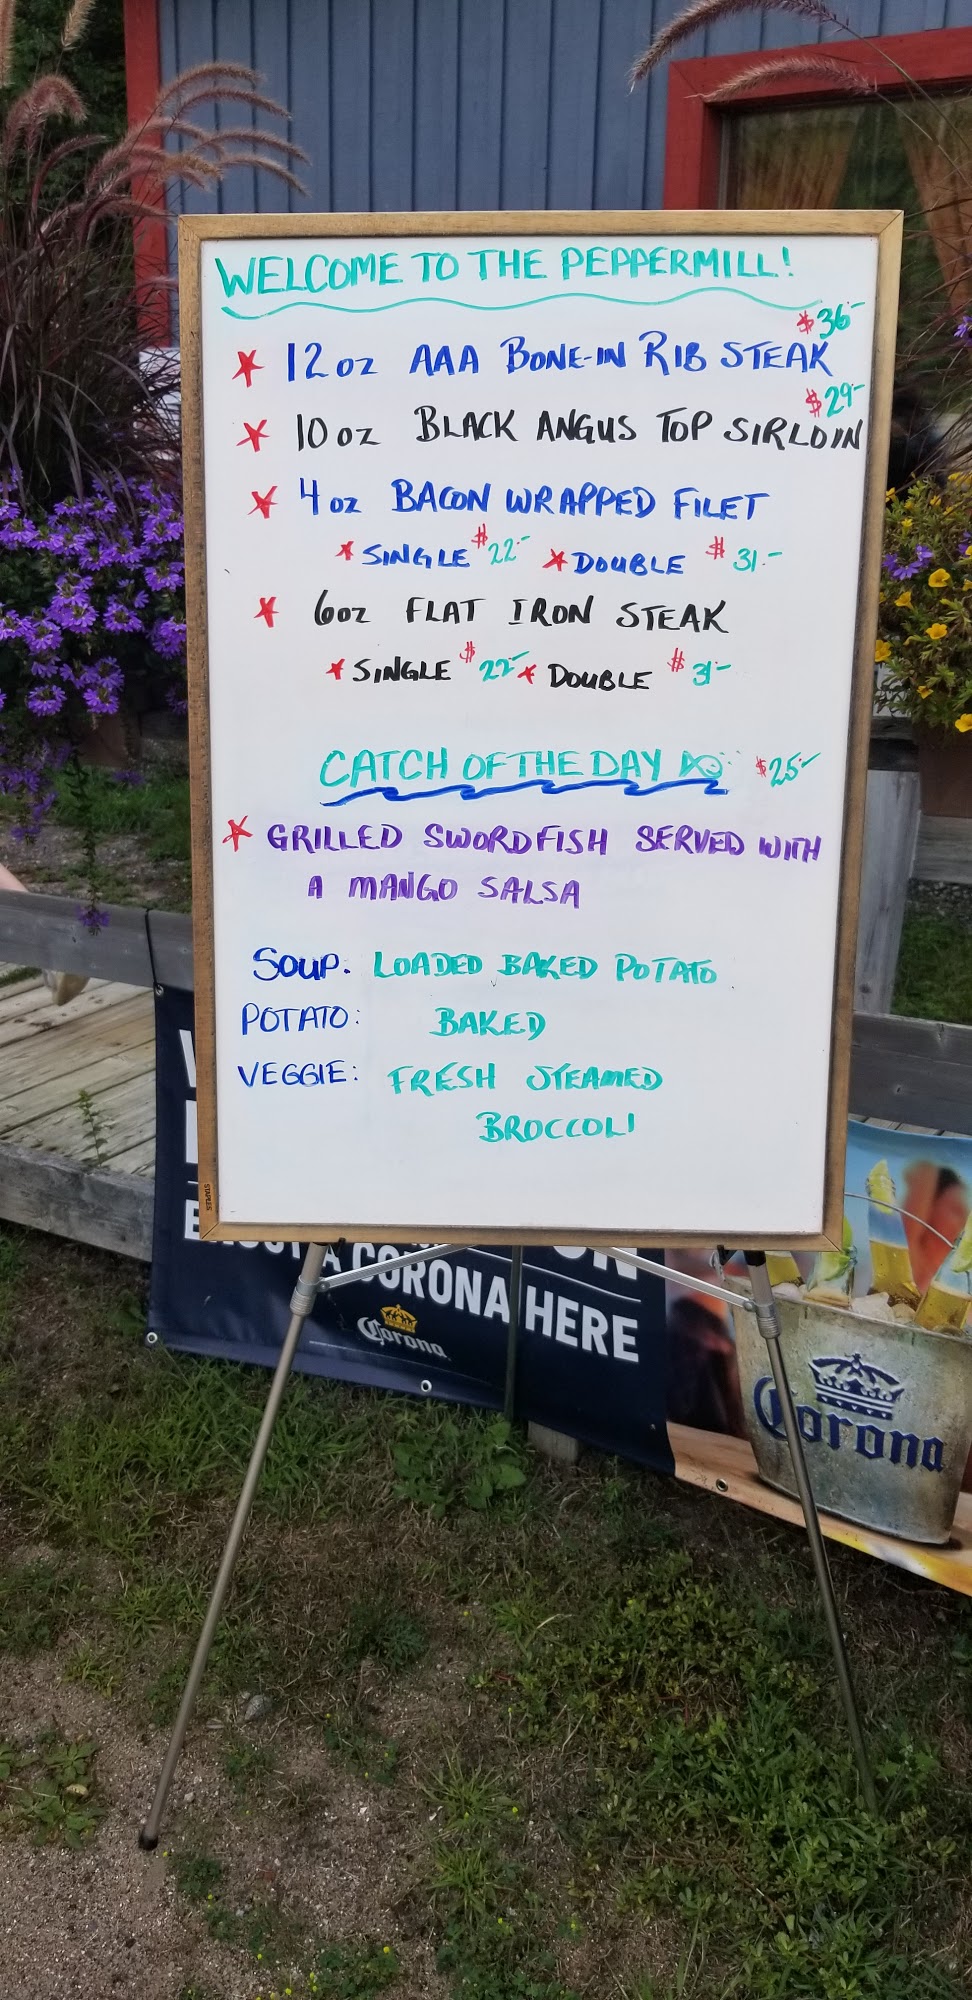 WELCOME TO THE PEPPERMILL!
$36-
* 12 oz AAA BONE-IN RIB STEAK
$29-
* 10 oz BLACK ANGUS TOP SIRLOIN
* 4 oz BACON WRAPPED FILET
* SINGLE $22.- * DOUBLE $31.-
* 6oz FLAT IRON STEAK
* SINGLE $22- * DOUBLE $31-
CATCH OF THE DAY $25-
* GRILLED SWORDFISH SERVED WITH
A MANGO SALSA
SOUP. LOADED BAKED POTATO
POTATO: BAKED
VEGGIE: FRESH STEAMED
BROCCOLI
STAPLES
A CORONA HERE
Corona
Corona